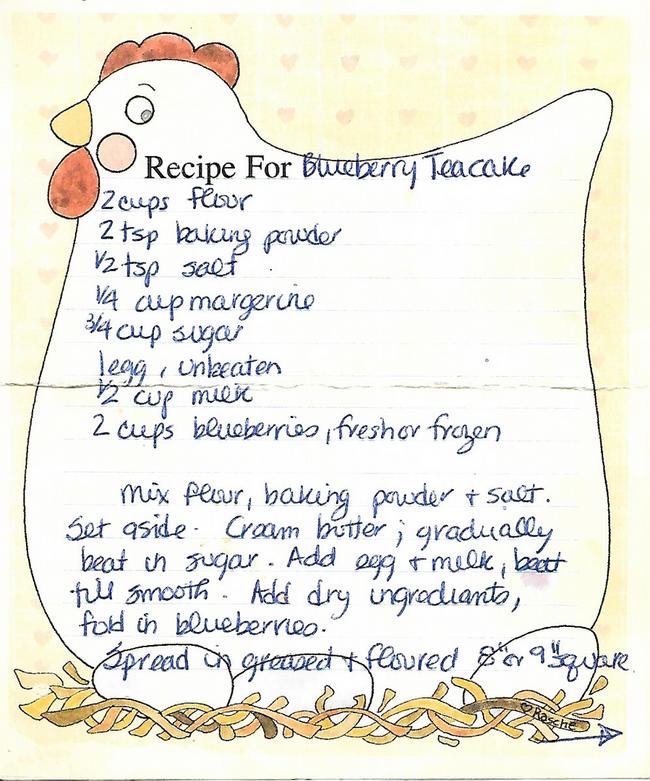 Recipe For Blueberry Teacake
2 cups flour
2 tsp baking powder
1/2 tsp salt
1/4 cup margerine
3/4 cup sugar
1 egg, unbeaten
1/2 cup milk
2 cups blueberries, fresh or frozen
Mix flour, baking powder + salt.
Set aside. Cream butter; gradually
beat in sugar. Add egg + milk, beat
till smooth. Add dry ingrediants,
fold in blueberries.
Spread in greased + floured 8" or 9" square
♡ Rasche